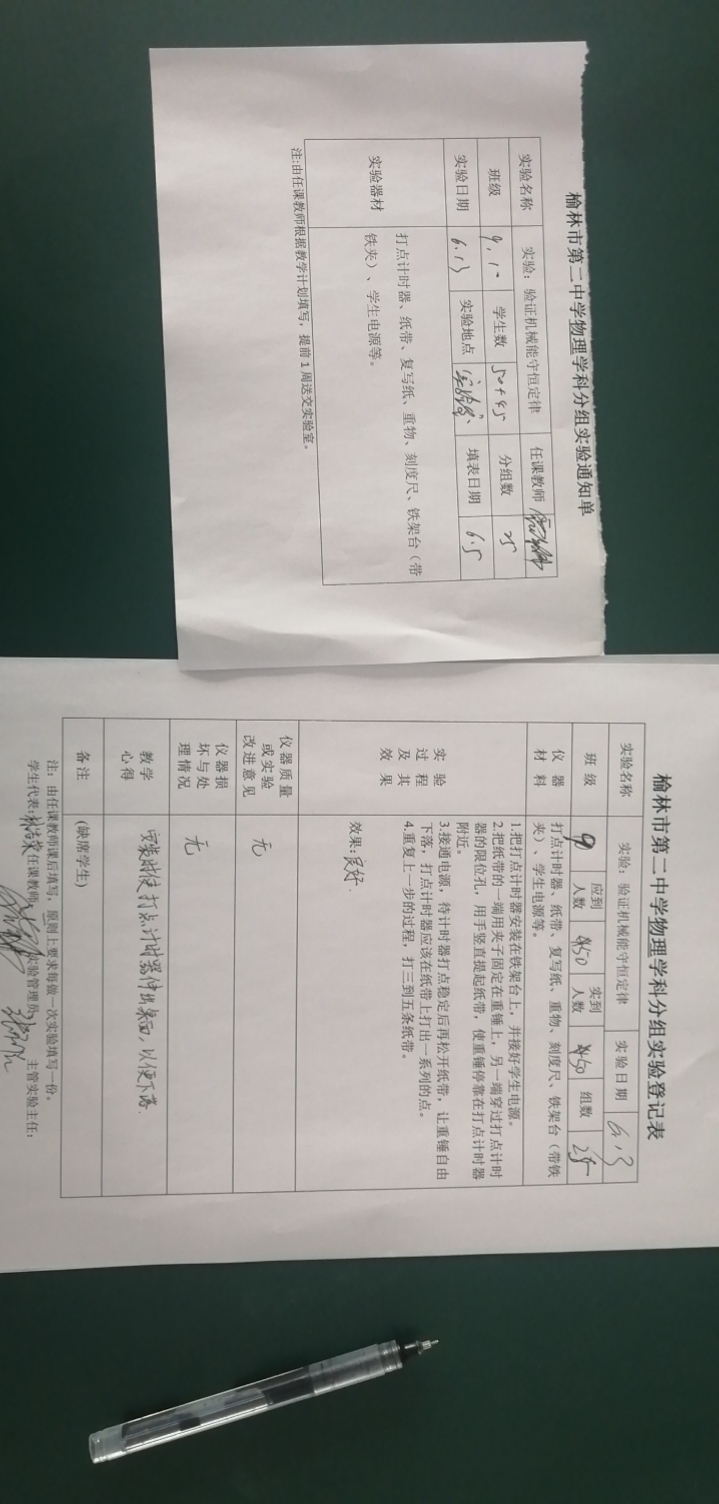 榆林市第二中学物理学科分组实验通知单
实验名称 实验：验证机械能守恒定律 任课教师
班级 9, 1 学生数 50+45 分组数 25
实验日期 6.13 实验地点 实验楼 填表日期 6.5
实验器材 打点计时器、纸带、复写纸、重物、刻度尺、铁架台（带
铁夹）、学生电源等。
注:由任课教师根据教学计划填写，提前1周送交实验室。
榆林市第二中学物理学科分组实验登记表
实验名称 实验：验证机械能守恒定律 实验日期 6.13
班 级 9 应到人数 50 实到人数 50 组数 25
仪 器
材 料
打点计时器、纸带、复写纸、重物、刻度尺、铁架台（带铁
夹）、学生电源等。
实 验
过 程
及 其
效 果
1.把打点计时器安装在铁架台上，并接好学生电源。
2.把纸带的一端用夹子固定在重锤上，另一端穿过打点计时
器的限位孔，用手竖直提起纸带，使重锤停靠在打点计时器
附近。
3.接通电源，待计时器打点稳定后再松开纸带，让重锤自由
下落，打点计时器应该在纸带上打出一系列的点。
4.重复上一步的过程，打三到五条纸带。
效果：良好.
仪器质量
或实验
改进意见
无
仪器损
坏与处
理情况
无
教学
心得
安装时使打点计时器伸出桌面，以便下落.
备注 (缺席学生)
注：由任课教师课后填写，原则上要求每做一次实验填写一份。
学生代表: 任课教师: 实验管理员: 主管实验主任: